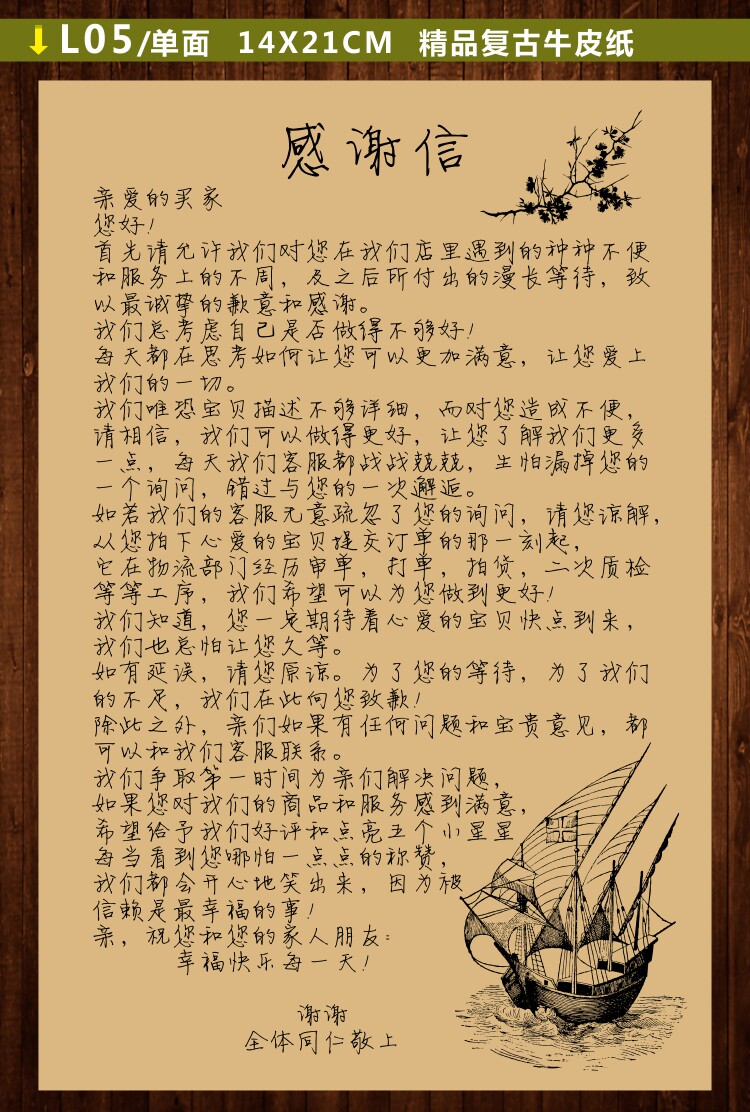 L05/单面 14X21CM 精品复古牛皮纸
感谢信
亲爱的买家
您好!
首先请允许我们对您在我们店里遇到的种种不便
和服务上的不周，及之后所付出的漫长等待，致
以最诚挚的歉意和感谢。
我们总考虑自己是否做得不够好!
每天都在思考如何让您可以更加满意，让您爱上
我们的一切。
我们唯恐宝贝描述不够详细，而对您造成不便，
请相信，我们可以做得更好，让您了解我们更多
一点，每天我们客服都战战兢兢，生怕漏掉您的
一个询问，错过与您的一次邂逅。
如若我们的客服无意疏忽了您的询问，请您谅解，
从您拍下心爱的宝贝提交订单的那一刻起，
它在物流部门经历审单，打单，拍货，二次质检
等等工序，我们希望可以为您做到更好!
我们知道，您一定期待着心爱的宝贝快点到来，
我们也总怕让您久等。
如有延误，请您原谅。为了您的等待，为了我们
的不足，我们在此向您致歉!
除此之外，亲们如果有任何问题和宝贵意见，都
可以和我们客服联系。
我们争取第一时间为亲们解决问题，
如果您对我们的商品和服务感到满意，
希望给予我们好评和点亮五个小星星
每当看到您哪怕一点点的称赞，
我们都会开心地笑出来，因为被
信赖是最幸福的事!
亲，祝您和您的家人朋友:
幸福快乐每一天!
谢谢
全体同仁敬上